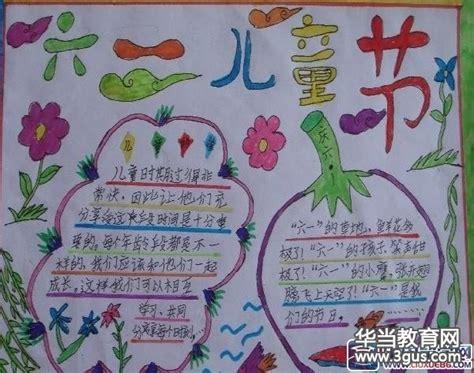 六一儿童节
儿童时期过得非
常快，因此让他们充
分享受这段时间是十分重
要的，每个年龄段都是不一
样的，我们应该和他们一起
成长，这样我们可以相互
学习、共同
分享每个时刻
庆六一
“六一”的草地，鲜花香
极了！“六一”的孩子，笑声甜
极了！“六一”的小鹰，张开翅
膀飞上天空了！“六一”是我
们的节日。
华当教育网
www.3gus.com